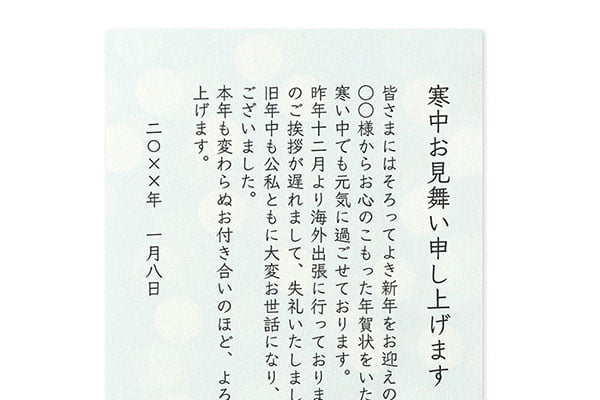 寒中お見舞い申し上げます
皆さまにはそろってよき新年をお迎えの
〇〇様からお心のこもった年賀状をいた
寒い中でも元気に過ごせております。
昨年十二月より海外出張に行っておりま
のご挨拶が遅れまして、失礼いたしまし
旧年中も公私ともに大変お世話になり、
ございました。
本年も変わらぬお付き合いのほど、よろ
上げます。
二〇××年　一月八日